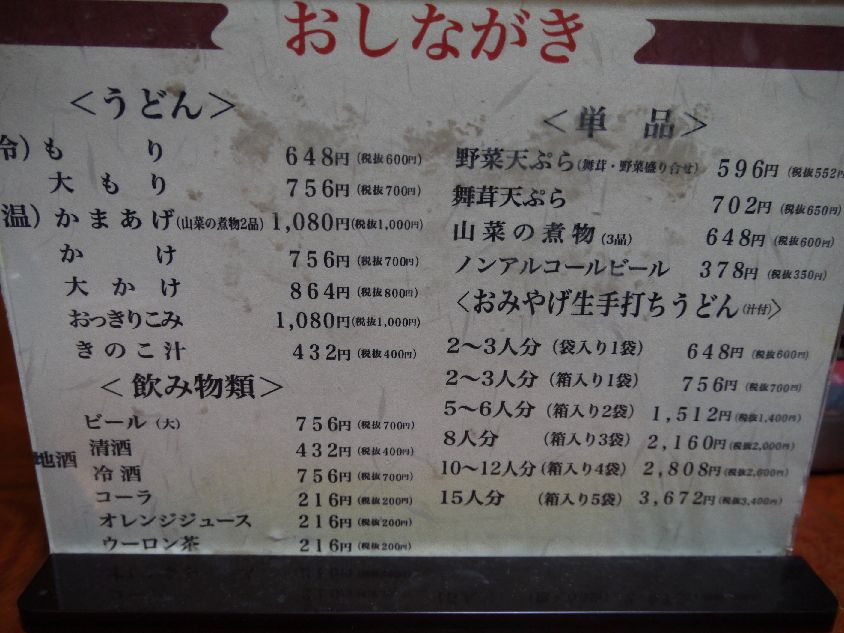 おしながき
＜うどん＞
冷）もり 648円（税抜600円）
大もり 756円（税抜700円）
温）かまあげ（山菜の煮物2品）1,080円（税抜1,000円）
かけ 756円（税抜700円）
大かけ 864円（税抜800円）
おっきりこみ 1,080円（税抜1,000円）
きのこ汁 432円（税抜400円）
＜飲み物類＞
ビール（大） 756円（税抜700円）
地酒
清酒 432円（税抜400円）
冷酒 756円（税抜700円）
コーラ 216円（税抜200円）
オレンジジュース 216円（税抜200円）
ウーロン茶 216円（税抜200円）
＜単品＞
野菜天ぷら（舞茸・野菜盛り合せ） 596円（税抜552円
舞茸天ぷら 702円（税抜650円）
山菜の煮物（3品） 648円（税抜600円）
ノンアルコールビール 378円（税抜350円）
＜おみやげ生手打ちうどん（汁付）＞
2～3人分（袋入り1袋） 648円（税抜600円）
2～3人分（箱入り1袋） 756円（税抜700円）
5～6人分（箱入り2袋） 1,512円（税抜1,400円）
8人分（箱入り3袋） 2,160円（税抜2,000円）
10～12人分（箱入り4袋） 2,808円（税抜2,600円）
15人分（箱入り5袋） 3,672円（税抜3,400円）